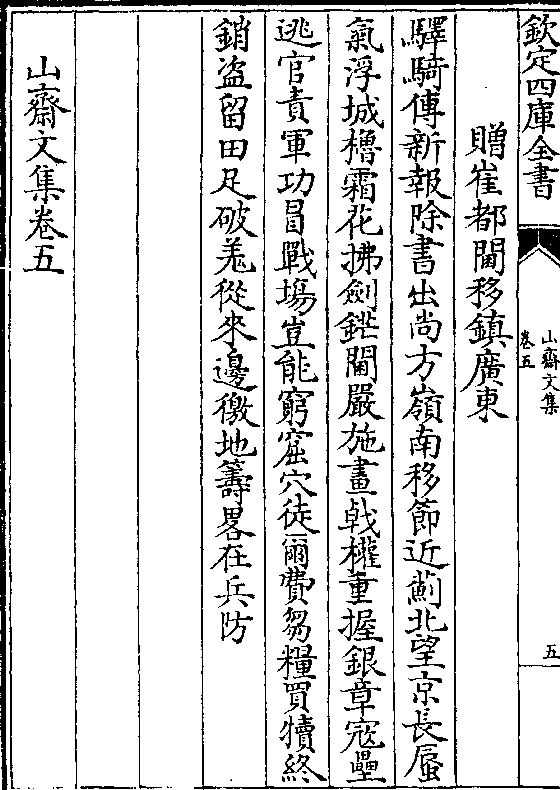 欽定四庫全書
山齋文集
卷五
五
贈崔都閫移鎮廣東
驛騎傳新報除書出尚方嶺南移節近薊北望京長蜃
氣浮城櫓霜花拂劍鋩閫嚴施畫戟權重握銀章寇壘
逃官責軍功冒戰塲豈能窮窟穴徒爾費芻糧買犢終
銷盗留田足破羗從來邊徼地籌畧在兵防
山齋文集卷五